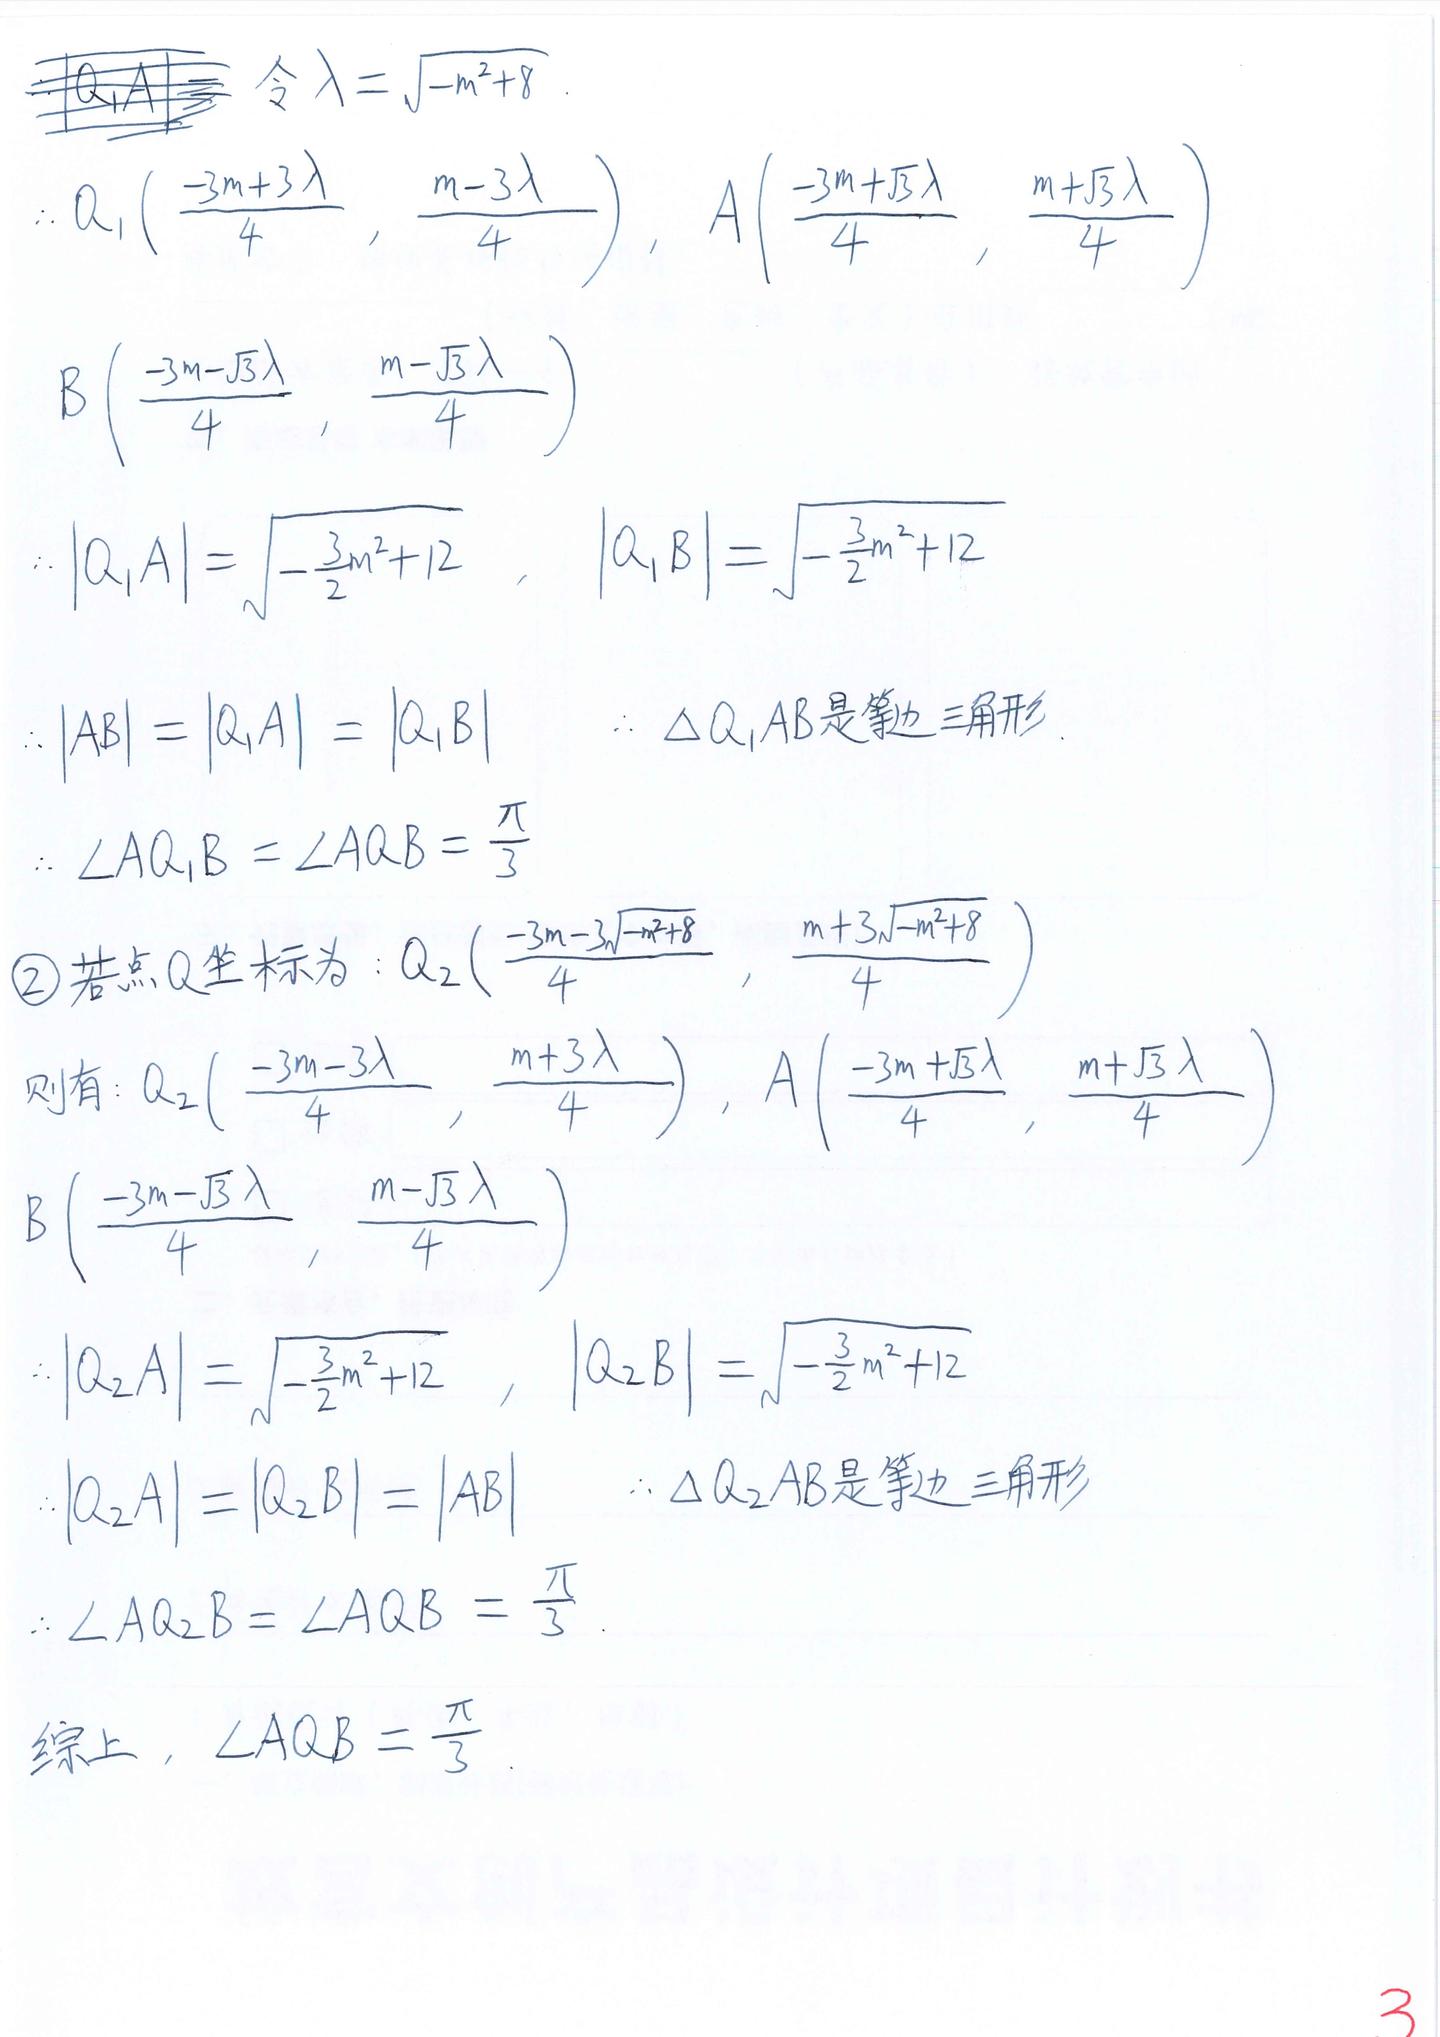 令 λ = √(-m²+8) .
∴ Q₁( (-3m+3λ)/4 , (m-3λ)/4 ) , A( (-3m+√3λ)/4 , (m+√3λ)/4 )
B( (-3m-√3λ)/4 , (m-√3λ)/4 )
∴ |Q₁A| = √(-3/2m²+12) , |Q₁B| = √(-3/2m²+12)
∴ |AB| = |Q₁A| = |Q₁B| ∴ △Q₁AB是等边三角形.
∴ ∠AQ₁B = ∠AQB = π/3
② 若点Q坐标为: Q₂( (-3m-3√(-m²+8))/4 , (m+3√(-m²+8))/4 )
则有: Q₂( (-3m-3λ)/4 , (m+3λ)/4 ) , A( (-3m+√3λ)/4 , (m+√3λ)/4 )
B( (-3m-√3λ)/4 , (m-√3λ)/4 )
∴ |Q₂A| = √(-3/2m²+12) , |Q₂B| = √(-3/2m²+12)
∴ |Q₂A| = |Q₂B| = |AB| ∴ △Q₂AB是等边三角形
∴ ∠AQ₂B = ∠AQB = π/3 .
综上, ∠AQB = π/3 .
3